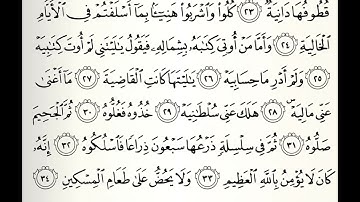 قُطُوفُهَا دَانِيَةٌ ٢٣ كُلُوا۟ وَٱشْرَبُوا۟ هَنِيٓـًٔۢا بِمَآ أَسْلَفْتُمْ فِى ٱلْأَيَّامِ
ٱلْخَالِيَةِ ٢٤ وَأَمَّا مَنْ أُوتِىَ كِتَٰبَهُۥ بِشِمَالِهِۦ فَيَقُولُ يَٰلَيْتَنِى لَمْ أُوتَ كِتَٰبِيَهْ
٢٥ وَلَمْ أَدْرِ مَا حِسَابِيَهْ ٢٦ يَٰلَيْتَهَا كَانَتِ ٱلْقَاضِيَةَ ٢٧ مَآ أَغْنَىٰ
عَنِّى مَالِيَهْ ۜ ٢٨ هَلَكَ عَنِّى سُلْطَٰنِيَهْ ٢٩ خُذُوهُ فَغُلُّوهُ ٣٠ ثُمَّ ٱلْجَحِيمَ
صَلُّوهُ ٣١ ثُمَّ فِى سِلْسِلَةٍ ذَرْعُهَا سَبْعُونَ ذِرَاعًا فَٱسْلُكُوهُ ٣٢ إِنَّهُۥ
كَانَ لَا يُؤْمِنُ بِٱللَّهِ ٱلْعَظِيمِ ٣٣ وَلَا يَحُضُّ عَلَىٰ طَعَامِ ٱلْمِسْكِينِ ٣٤